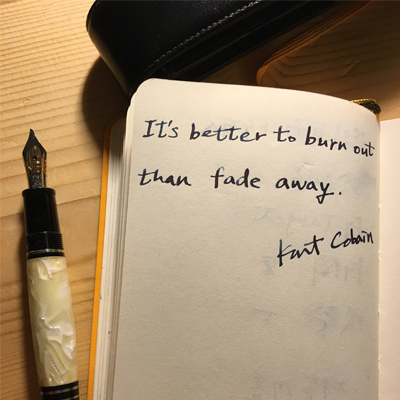 It's better to burn out
than fade away.
Kurt Cobain